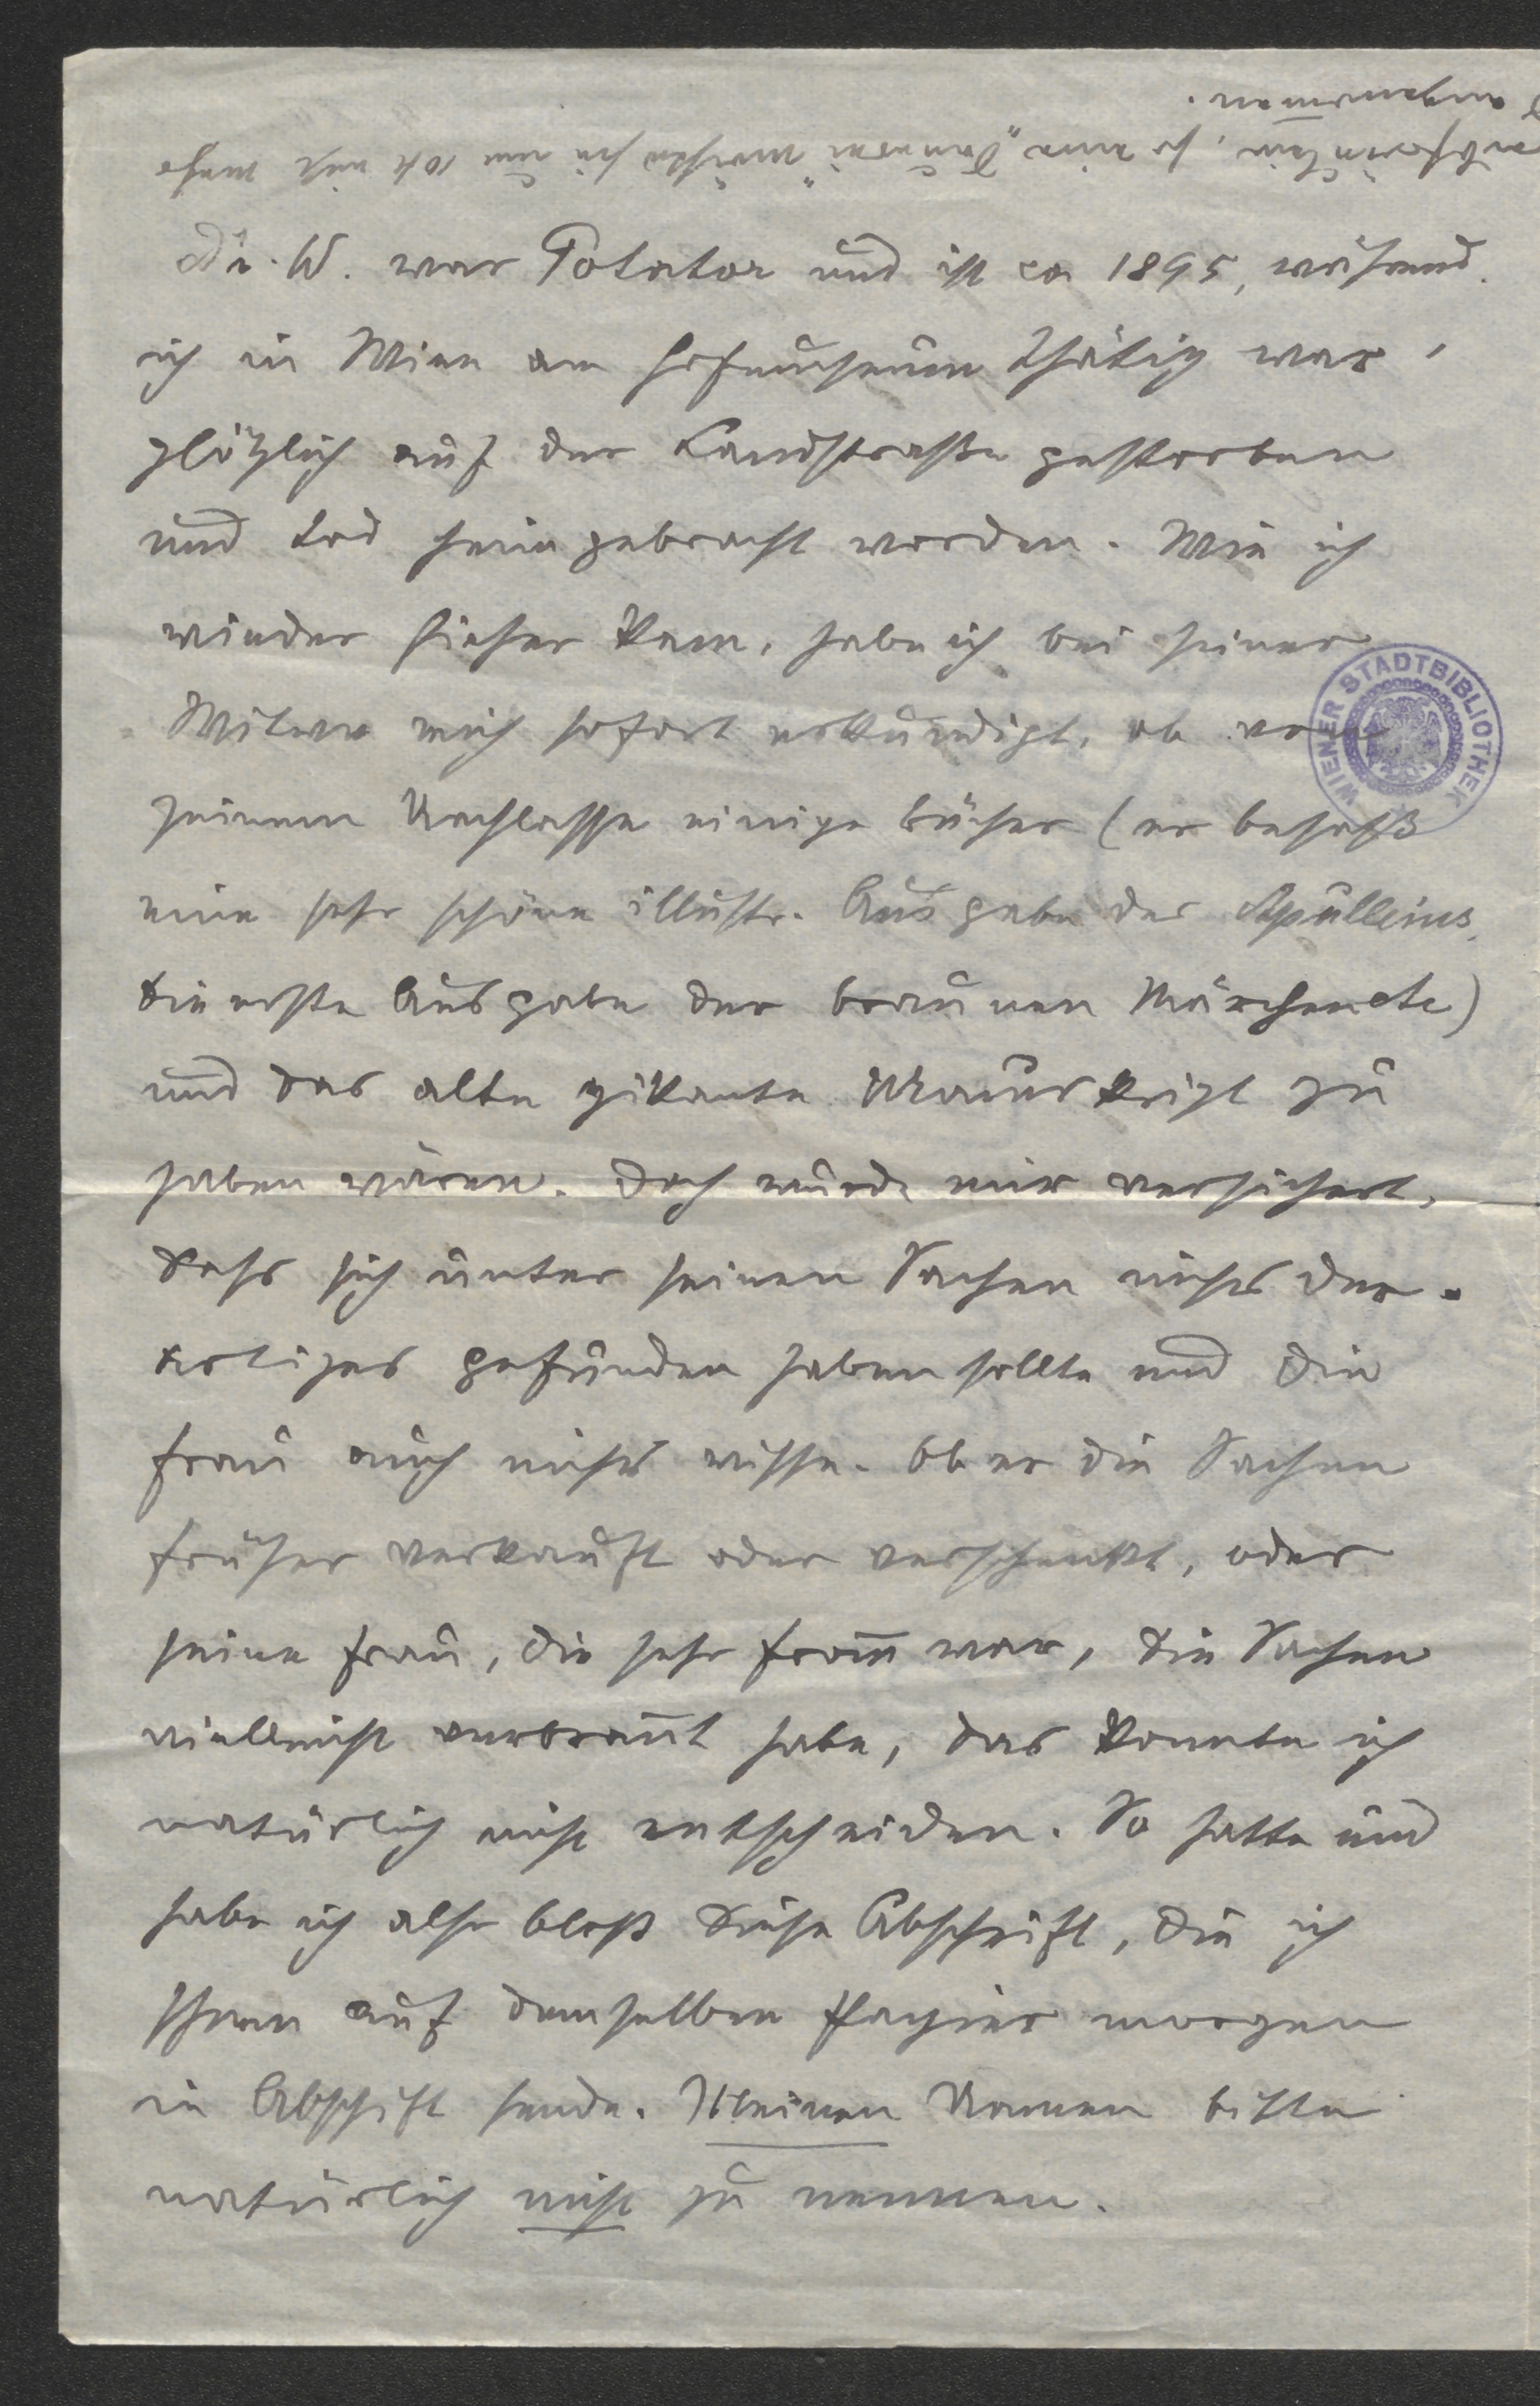 angenommen.
so eine "Dauerei" wünschen sie um 10 K nicht mehr
Dr. W. war Potator und ist ca 1895, während
ich in Wien am Hofmuseum thätig war,
plötzlich auf der Landstraße gestorben
und tod heimgebracht worden. Wie ich
wieder hieher kam, habe ich bei seiner
Witwe mich sofort erkundigt, ob von
seinem Nachlasse einige Bücher (er besaß
eine sehr schöne illustr. Ausgabe des Apulleius,
die erste Ausgabe der braunen Märchen etc)
und das alte pikante Manuskript zu
haben wären. Doch wurde mir versichert,
dass sich unter seinen Sachen nichts der-
artiges gefunden haben sollte und die
Frau auch nichts wisse. Ob er die Sachen
früher verkauft oder verschenkt, oder
seine Frau, die sehr from̅ war, die Sachen
vielleicht verbran̅t habe, das konnte ich
natürlich nicht entscheiden. So hatte und
habe ich also bloß diese Abschrift, die ich
Ihnen auf demselben Papier morgen
in Abschift sende. Meinen Namen bitte
natürlich nicht zu nennen.
WIENER STADTBIBLIOTHEK